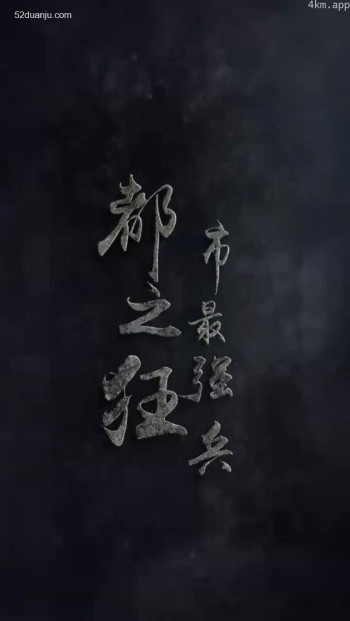 52duanju.com
4km.app
都市
之最
狂强
兵